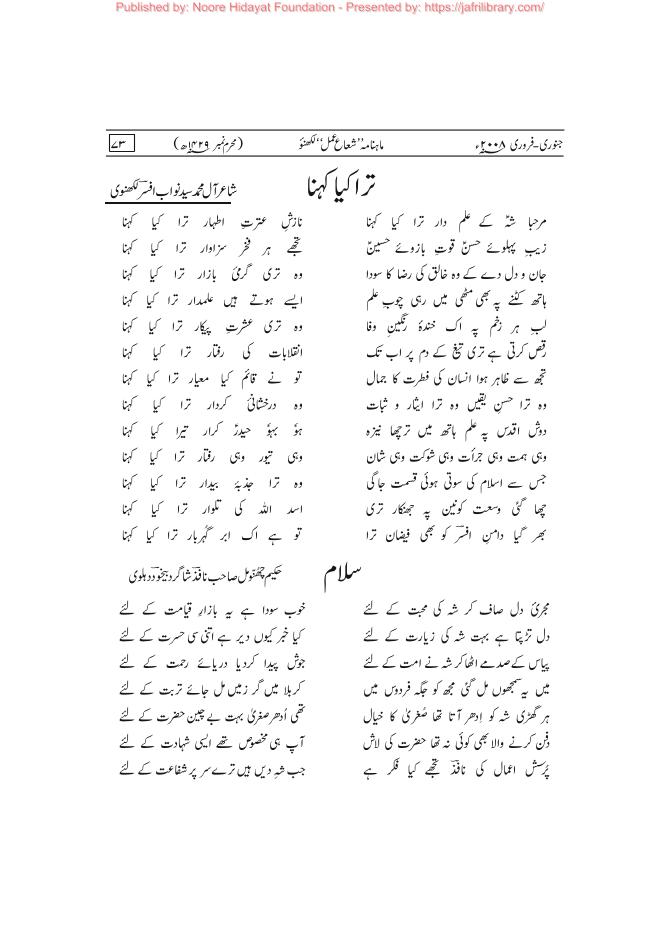 Published by: Noore Hidayat Foundation - Presented by: https://jafrilibrary.com/
جنوری-فروری ۲۰۰۸ء ماہنامہ ”شعاع عمل“ لکھنؤ (محرم نمبر ۱۴۲۹ھ) ۷۳
ترا کیا کہنا
شاعر آل محمد سید نواب افسرؔ لکھنوی
مرحبا شہؑ کے علم دار ترا کیا کہنا نازش عترتِ اطہار ترا کیا کہنا
زیبِ پہلوئے حسنؑ قوتِ بازوئے حسینؑ تجھے ہر فخر سزاوار ترا کیا کہنا
جان و دل دے کے وہ خالق کی رضا کا سودا وہ تری گرمیٔ بازار ترا کیا کہنا
ہاتھ کٹنے پہ بھی مٹھی میں رہی چوبِ علم ایسے ہوتے ہیں علمدار ترا کیا کہنا
لب ہر زخم پہ اک خندۂ رنگینِ وفا وہ تری عشرتِ پیکار ترا کیا کہنا
رقص کرتی ہے تری تیغ کے دم پر اب تک انقلابات کی رفتار ترا کیا کہنا
تجھ سے ظاہر ہوا انسان کی فطرت کا جمال تو نے قائم کیا معیار ترا کیا کہنا
وہ ترا حسنِ یقیں وہ ترا ایثار و ثبات وہ درخشانیٔ کردار ترا کیا کہنا
دوش اقدس پہ علم ہاتھ میں ترچھا نیزہ ہو بہو حیدرؑ کرار تیرا کیا کہنا
وہی ہمت وہی جرأت وہی شوکت وہی شان وہی تیور وہی رفتار ترا کیا کہنا
جس سے اسلام کی سوتی ہوئی قسمت جاگی وہ ترا جذبۂ بیدار ترا کیا کہنا
چھا گئی وسعت کونین پہ جھنکار تری اسد اللہ کی تلوار ترا کیا کہنا
بھر گیا دامنِ افسرؔ کو بھی فیضان ترا تو ہے اک ابر گہُربار ترا کیا کہنا
سلام
حکیم چھنّو مل صاحب نافذؔ شاگرد بیخودؔ دہلوی
مجرئ دل صاف کر شہ کی محبت کے لئے خوب سودا ہے یہ بازارِ قیامت کے لئے
دل تڑپتا ہے بہت شہ کی زیارت کے لئے کیا خبر کیوں دیر ہے اتنی سی حسرت کے لئے
پیاس کے صدمے اٹھا کر شہ نے امت کے لئے جوش پیدا کردیا دریائے رحمت کے لئے
میں یہ سمجھوں مل گئی مجھ کو جگہ فردوس میں کربلا میں گر زمیں مل جائے تربت کے لئے
ہر گھڑی شہ کو اِدھر آتا تھا صُغریٰ کا خیال تھی اُدھر صغریٰ بہت بے چین حضرت کے لئے
دفن کرنے والا بھی کوئی نہ تھا حضرت کی لاش آپ ہی مخصوص تھے ایسی شہادت کے لئے
پُرسش اعمال کی نافذؔ تجھے کیا فکر ہے جب شہِ دیں ہیں ترے سر پر شفاعت کے لئے